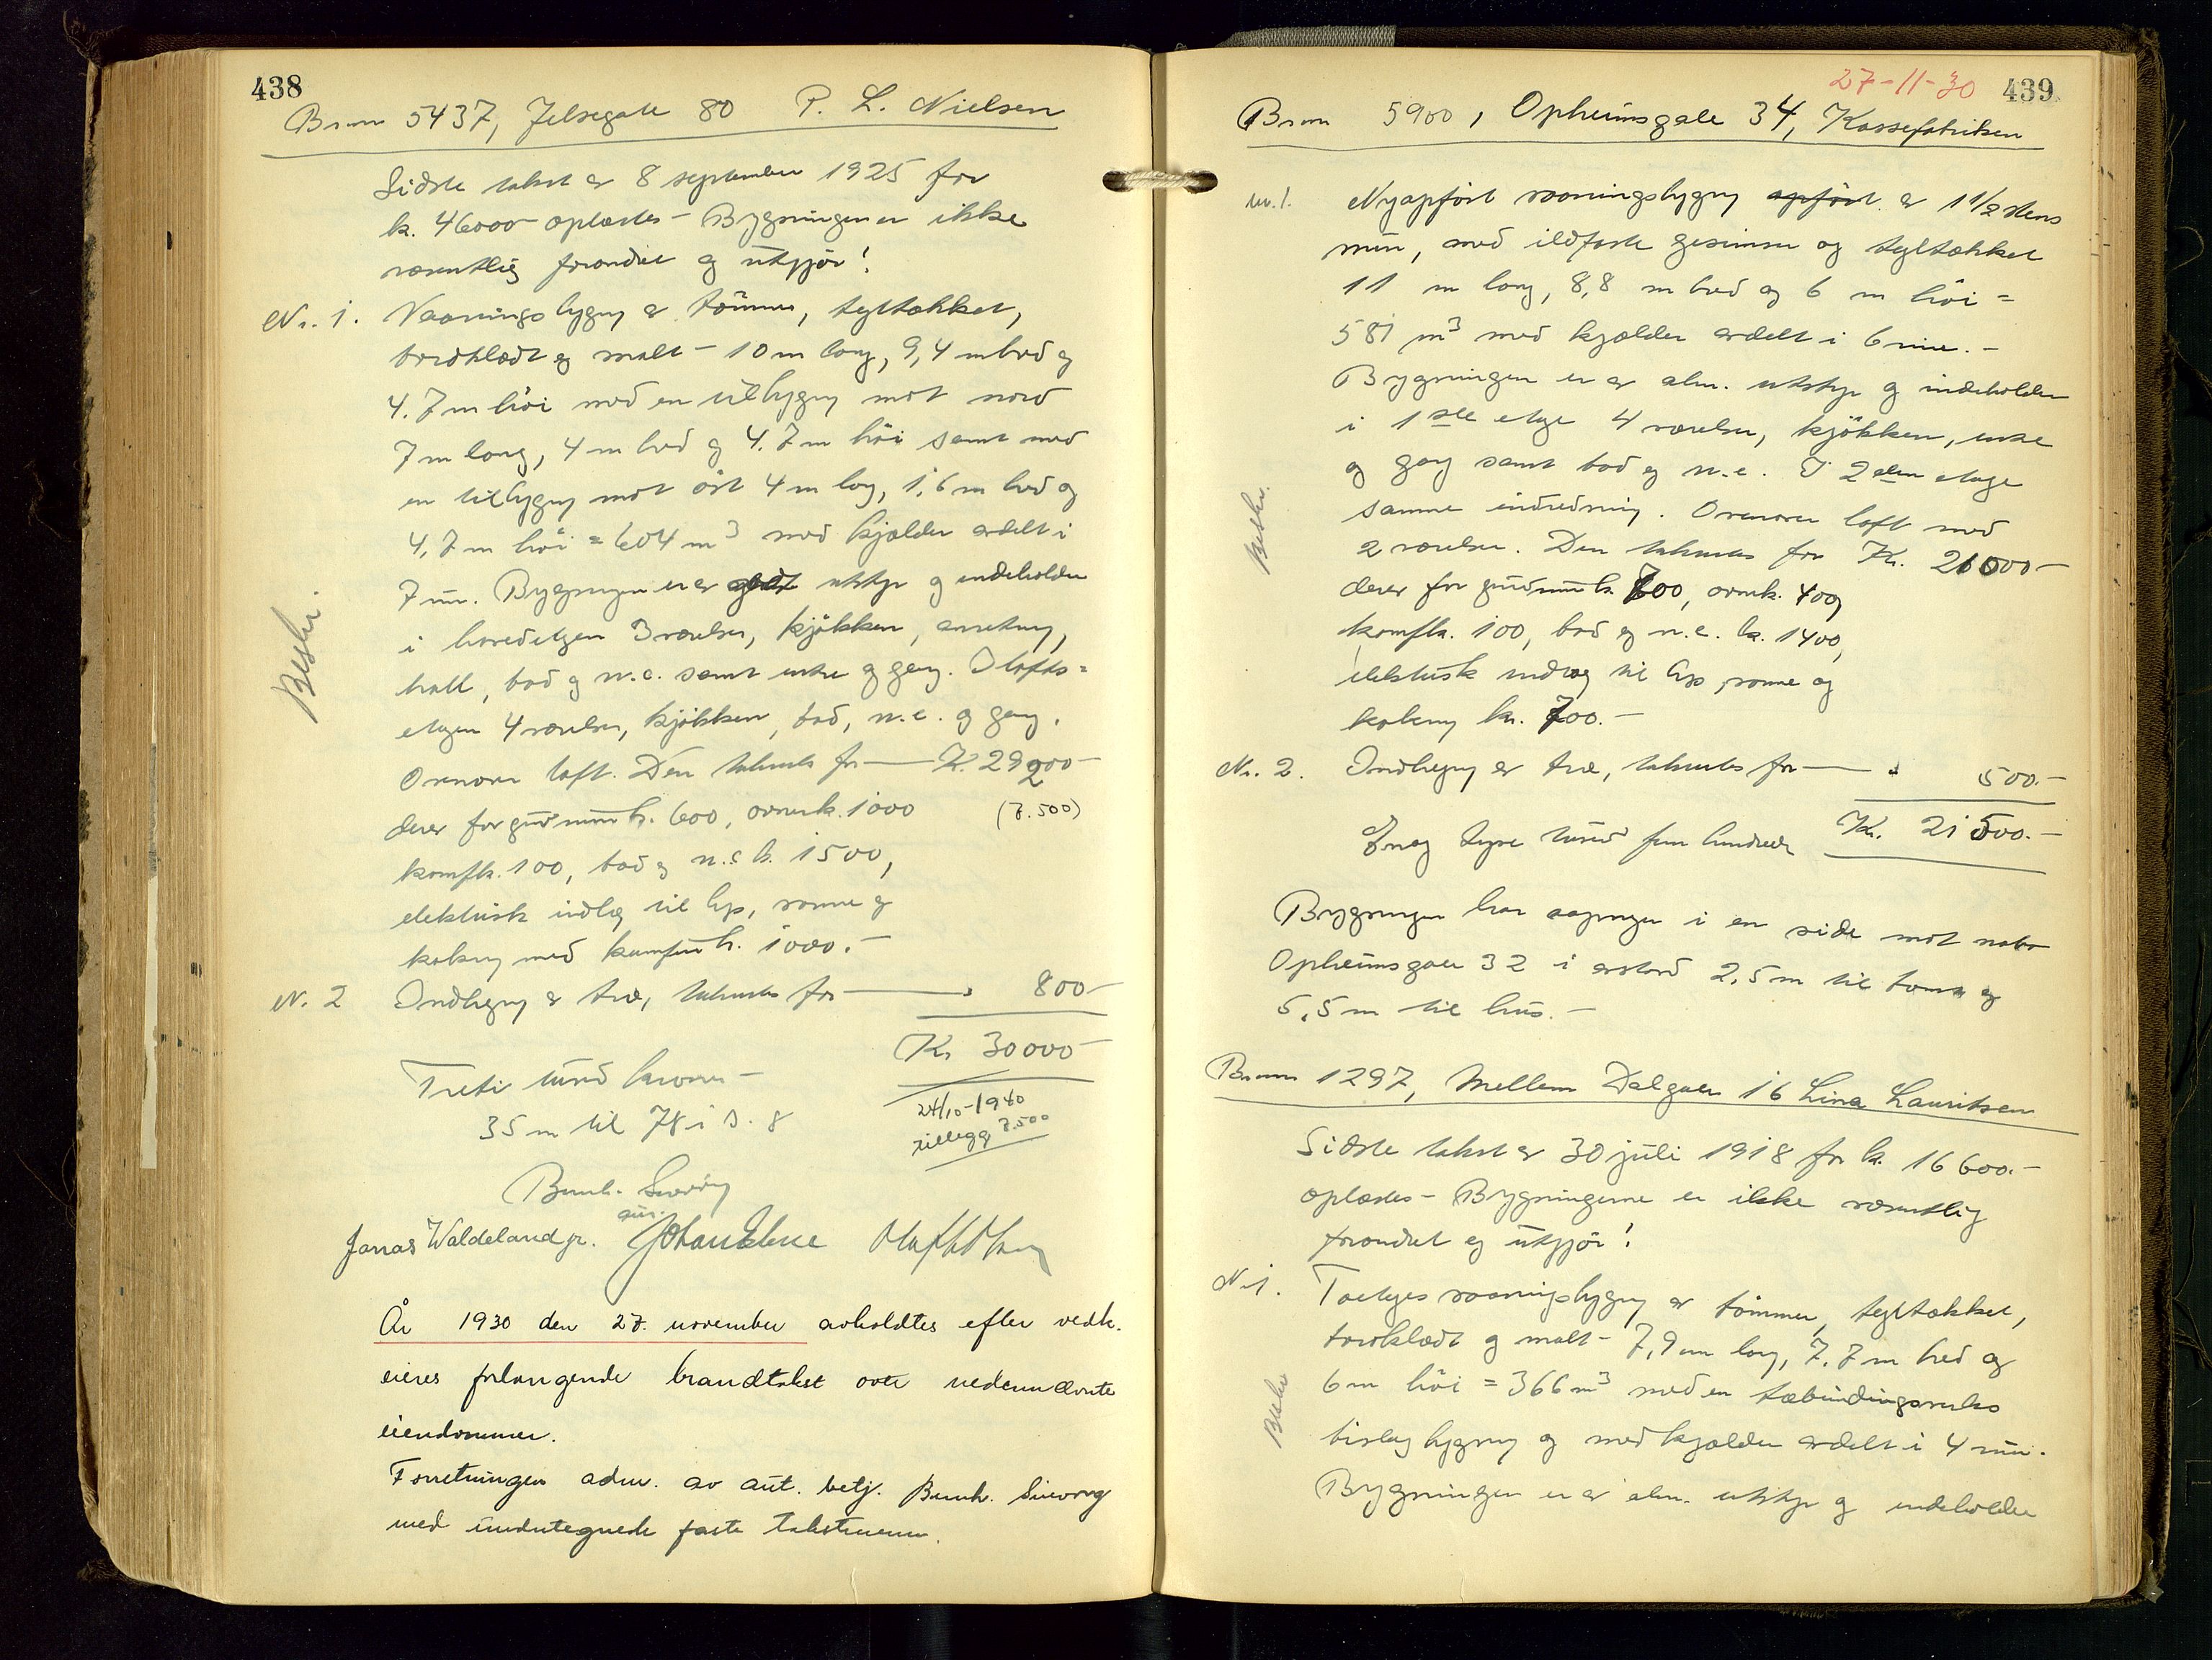 438
Brnm 5437, Jelsegate 80 P. L. Nielsen
Sidste takst av 8 september 1925 for
kr. 46000 oplæstes - Bygningen er ikke
væsentlig forandret og utgjør!
Nr. 1. Vaaningsbygng av tømmer, tegltækket,
bordklædt og malt - 10 m lang, 9,4 m bred og
4.7 m høi med en tilbygng mot nord
7 m lang, 4 m bred og 4.7 m høi samt med
en tilbygng mot øst 4 m lang, 1,6 m bred og
4,7 m høi = 604 m3 med kjælder avdelt i
7 rum. Bygningen er av godt utstyr og indeholder
i hovedetagen 3 værelser, kjøkken, anretning,
hall, bad og w.c. samt entre og gang. I lofts=
etagen 4 værelser, kjøkken, bad, w.c. og gang.
Ovenover loft. Den takseres for — Kr. 29200 -
derav for grundmur kr. 600, ovner kr. 1000 (7.500)
komfkr. 100, bad og w.c. kr. 1500,
elektrisk indlæg til lys, varme og
kokning med komfur kr. 1000. -
N. 2 Indhegng av træ, takseres for — " 800 -
Kr 30000 -
Treti tusind kroner -
35 m til 78 i s. 8
24/10-1940
tillegg 7.500
Beskr.
Bernh. Sivering
Jonas Waldeland jr.
År 1930 den 27. november avholdtes efter vedk.
eieres forlangende brandtakst over nedennævnte
eiendommer.
Forretningen adm. av aut. betj. Bernh. Sivering
med undertegnede faste takstmenn.
27-11-30 439
Brnm 5900, Opheimsgate 34, Kassefabriken
nr. 1. Nyopført vaaningsbygng opført av 1 1/2 stens
mur, med ildfaste gesimser og tegltækket
11 m lang, 8,8 m bred og 6 m høi =
581 m3 med kjælder avdelt i 6 rum. -
Bygningen er av alm. utstyr og indeholder
i 1ste etage 4 værelser, kjøkken, entre
og gang samt bad og w.c. I 2den etage
samme indredning. Ovenover loft med
2 værelser. Den takseres for Kr. 21000 -
derav for grundmur kr. 700, ovner kr. 400,
komfkr. 100, bad og w.c. kr. 1400,
elektrisk indlæg til lys, varme og
kokning kr. 700. -
Beskr.
Nr. 2. Indhegng av træ, takseres for — " 500. -
Kr. 21500. -
En og tyve tusind fem hundrede
Bygningen har aapninger i en side mot nabo
Opheimsgate 32 i avstand 2,5 m til tomt og
5,5 m til hus. -
Brnm 1297, Mellem Dalgaten 16 Lina Lauritsen
Sidste takst av 30 juli 1918 for kr. 16600. -
oplæstes - Bygningerne er ikke væsentlig
forandret og utgjør!
N 1. Toetages vaaningsbygng av tømmer, tegltækket,
bordklædt og malt - 7,9 m lang, 7.7 m bred og
6 m høi = 366 m3 med en tæbindingsverks
bislagbygng og med kjælder avdelt i 4 rum.
Bygningen er av alm. utstyr og indeholder
Beskr